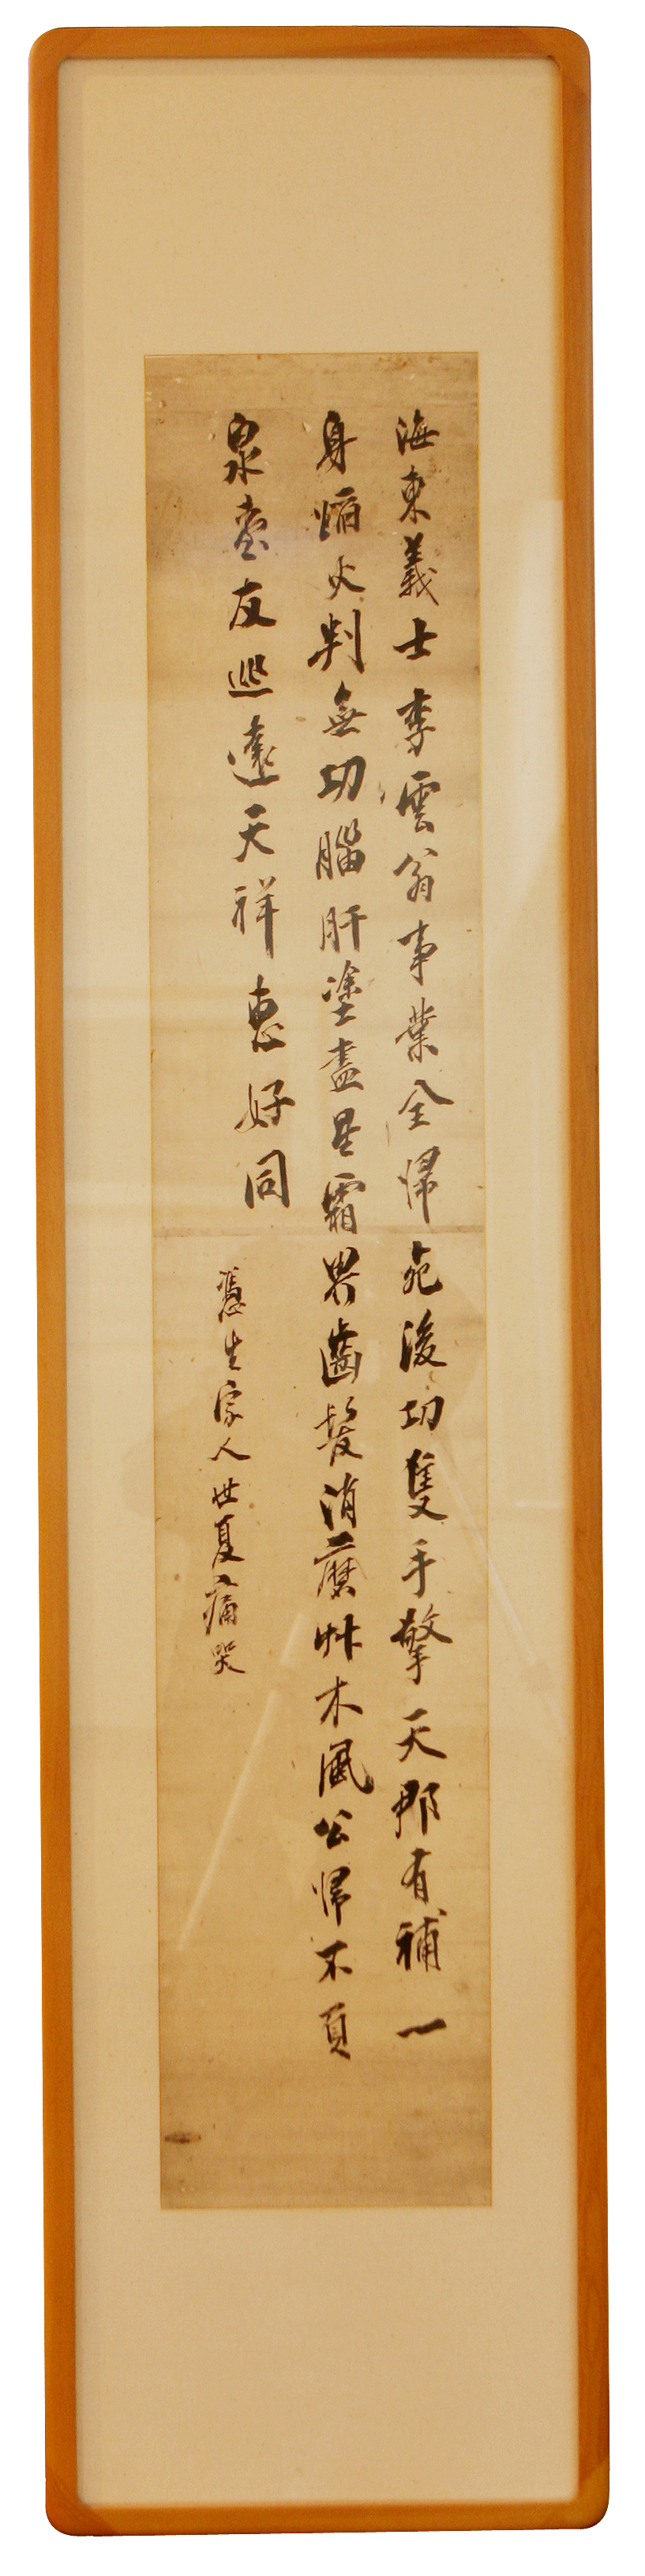 海東義士李雲翁事業全歸死後功隻手擎天那有補一
身焰火判無功腦肝塗盡星霜界齒髮消磨艸木風公歸不負
泉臺友巡遠天祥惠好同
憑生宗人世夏痛哭